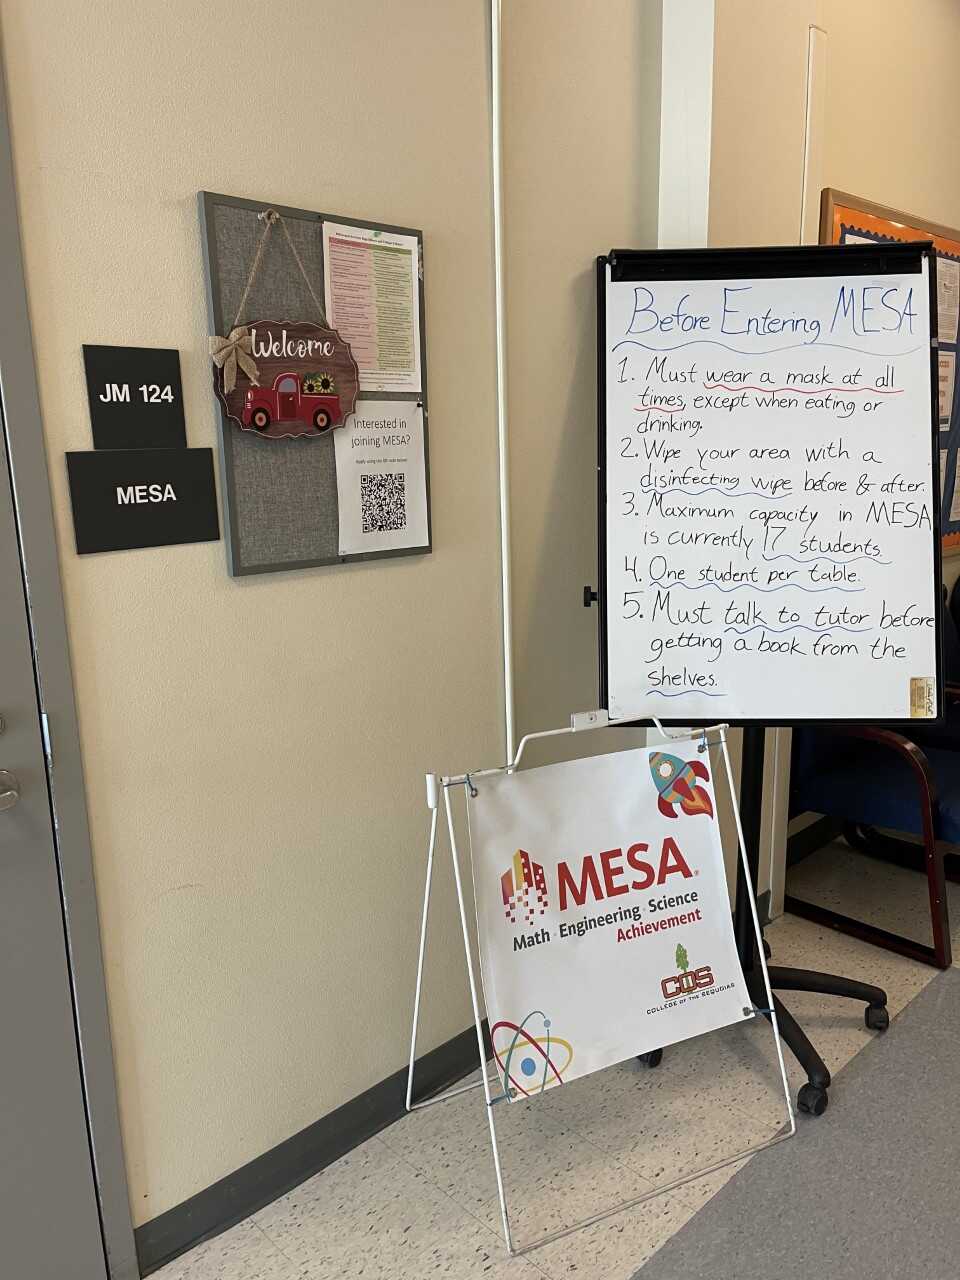 JM 124
MESA
Welcome
Interested in
joining MESA?
Before Entering MESA
1. Must wear a mask at all
times, except when eating or
drinking.
2. Wipe your area with a
disinfecting wipe before & after.
3. Maximum capacity in MESA
is currently 17 students.
4. One student per table.
5. Must talk to tutor before
getting a book from the
shelves.
MESA®
Math · Engineering · Science
Achievement
COS
COLLEGE OF THE SEQUOIAS